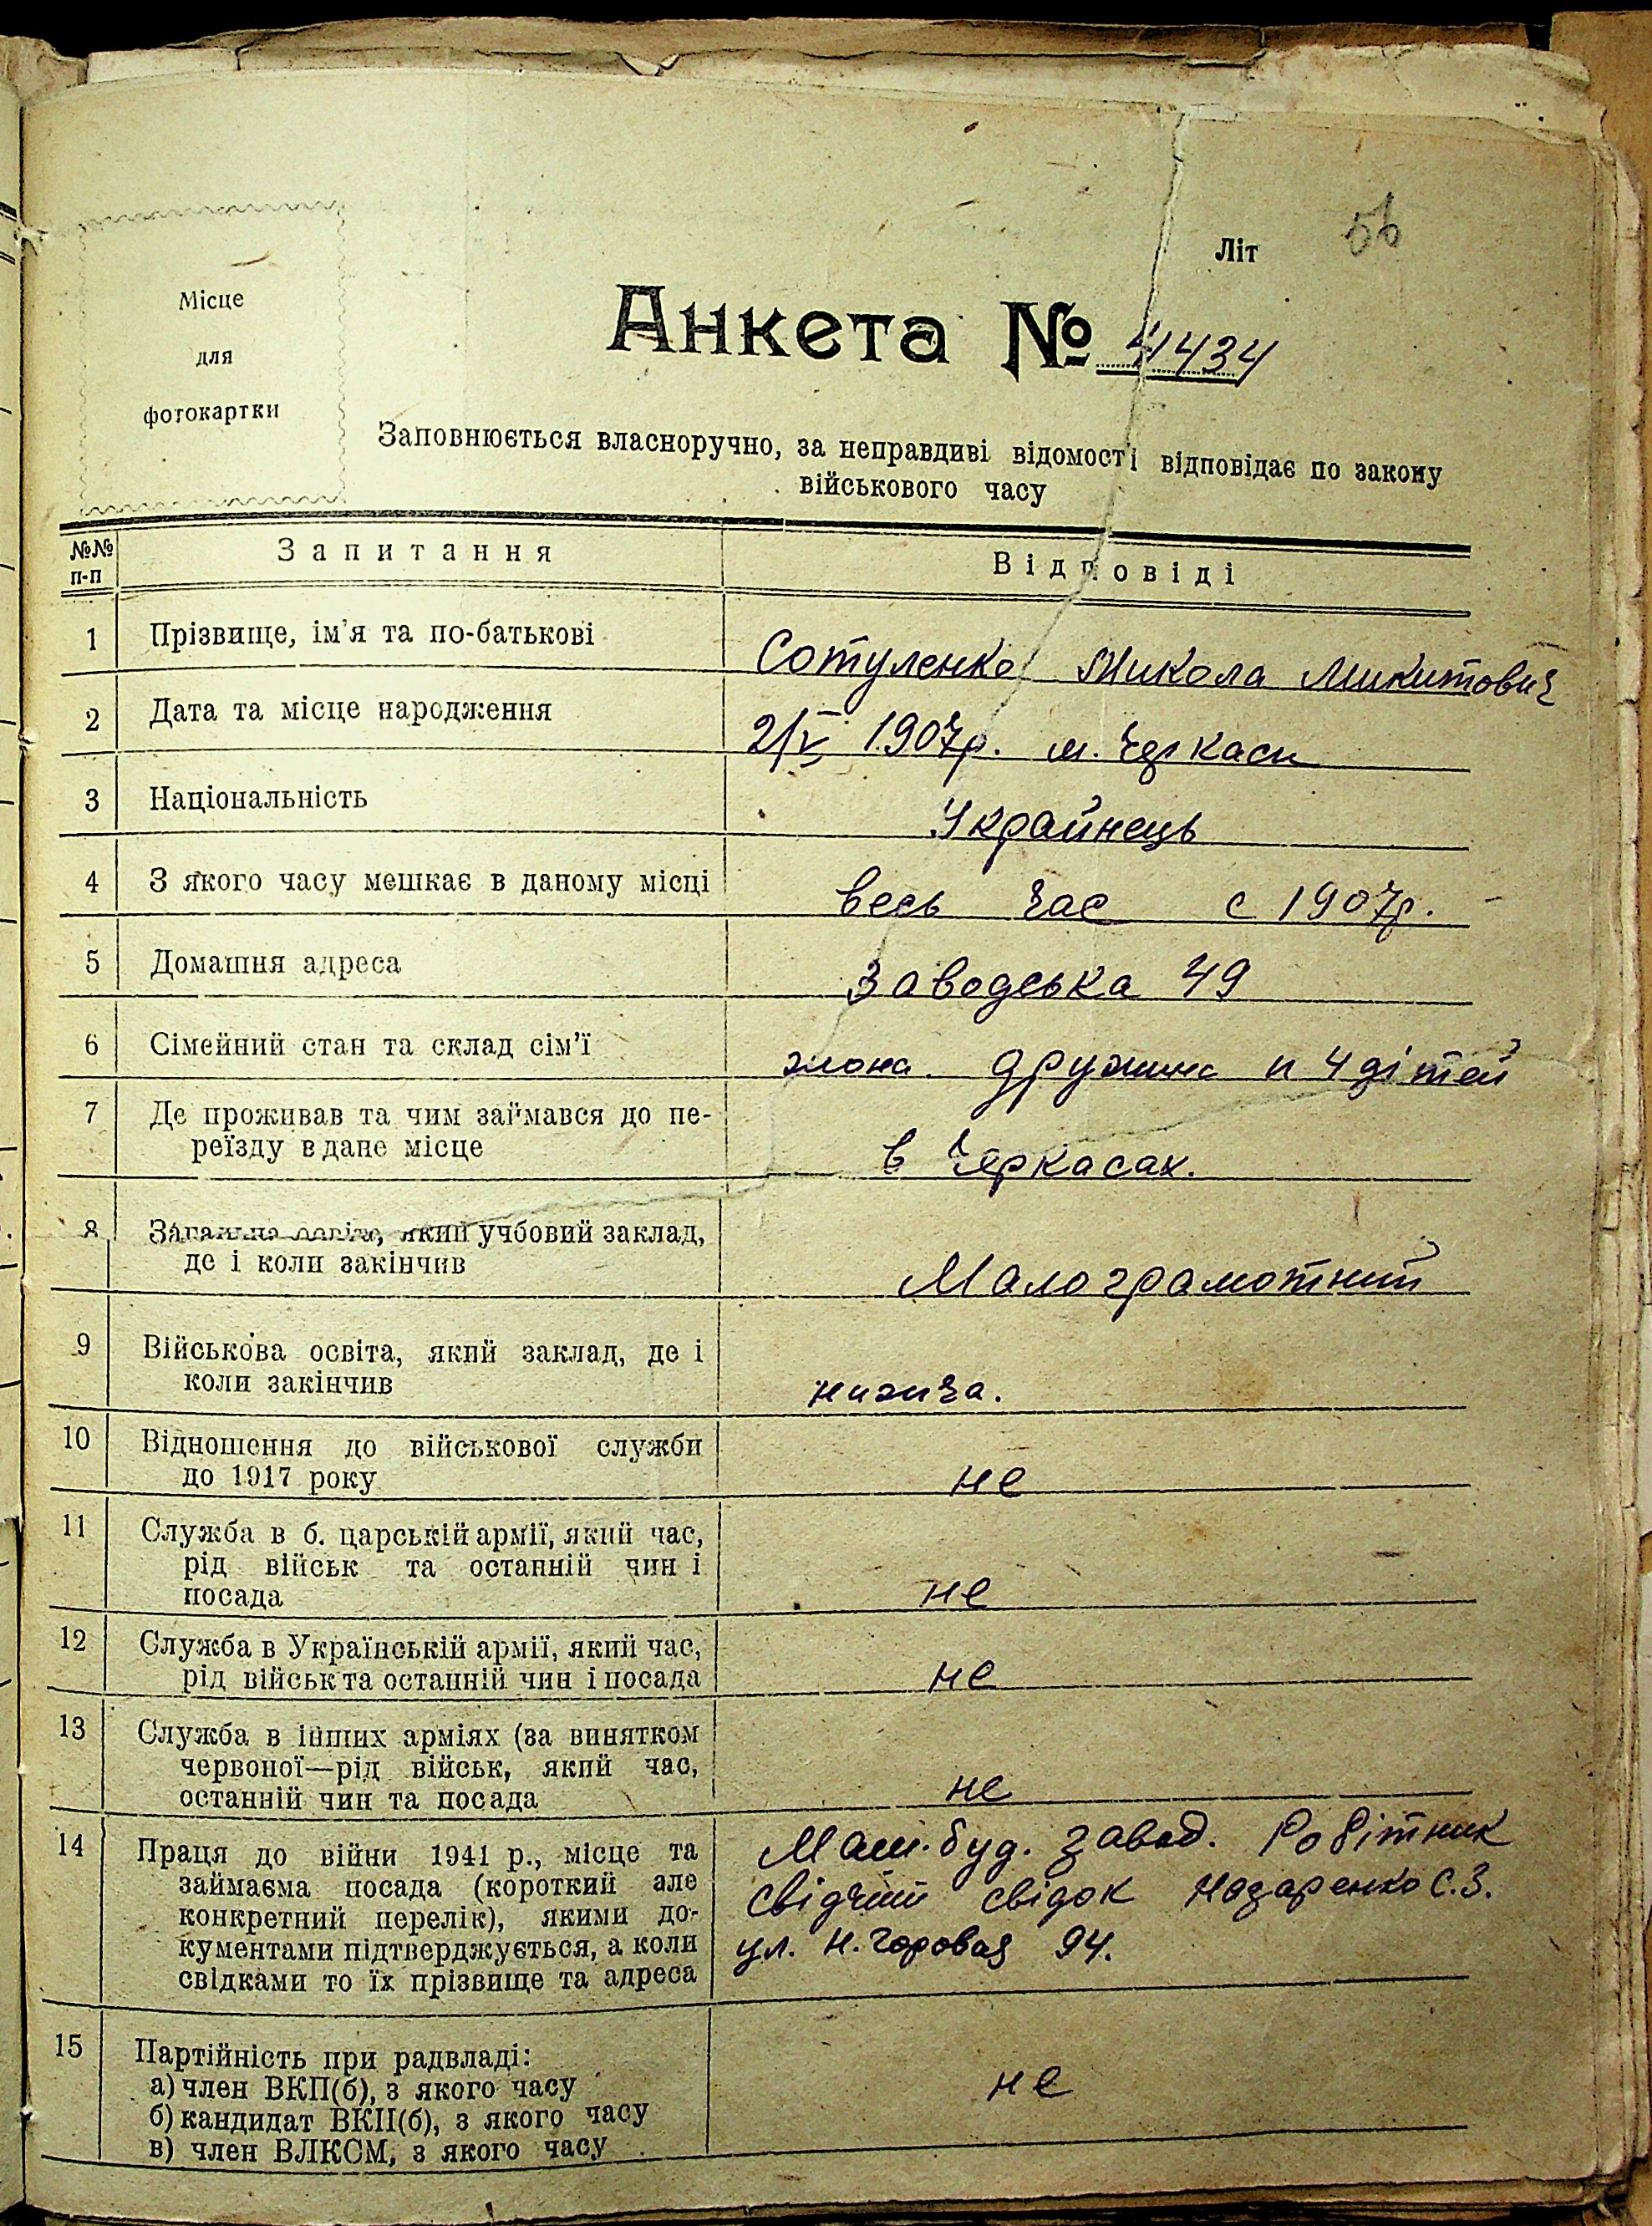 Літ 56
Місце
для
фотокартки
Анкета № 41434
Заповнюється власноручно, за неправдиві відомості відповідає по закону
військового часу
№№ п-п Запитання Відповіді
1 Прізвище, ім'я та по-батькові Сотуленко Микола Микитович
2 Дата та місце народження 2/V 1907р. м. Черкаси
3 Національність Украйнець
4 З якого часу мешкає в даному місці весь час с 1907р.
5 Домашня адреса Заводська 49
6 Сімейний стан та склад сім'ї жона. дружина и 4 дітей
7 Де проживав та чим займався до пе-
реїзду в дане місце в Черкасах.
8 Загальна освіта, який учбовий заклад,
де і коли закінчив Малограмотний
9 Військова освіта, який заклад, де і
коли закінчив нижча.
10 Відношення до військової служби
до 1917 року не
11 Служба в б. царській армії, який час,
рід військ та останній чин і
посада не
12 Служба в Українській армії, який час,
рід військ та останній чин і посада не
13 Служба в інших арміях (за винятком
червоної—рід військ, який час,
останній чин та посада не
14 Праця до війни 1941 р., місце та Маш.буд. завод. Робітник
займаєма посада (короткий але свідчит свідок Назаренко С.З.
конкретний перелік), якими до- ул. Н. Горовая 94.
кументами підтверджується, а коли
свідками то їх прізвище та адреса
15 Партійність при радвладі:
а) член ВКП(б), з якого часу не
б) кандидат ВКП(б), з якого часу
в) член ВЛКСМ, з якого часу